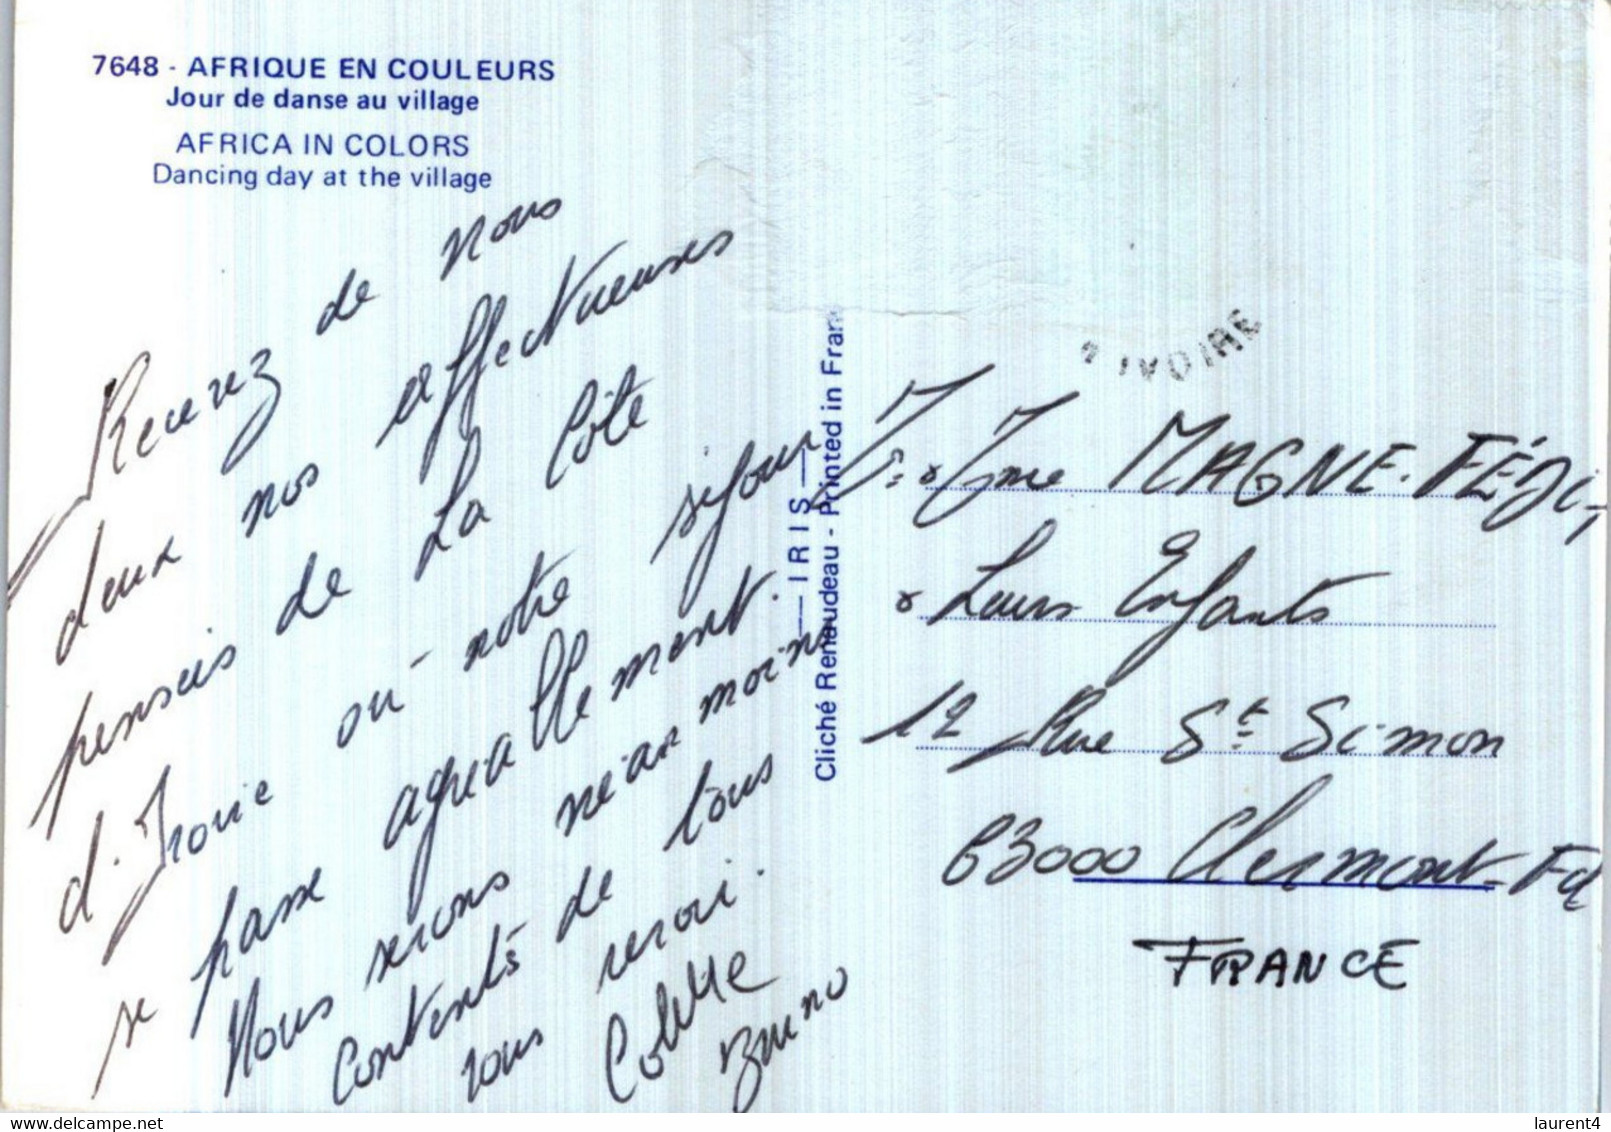 7648 - AFRIQUE EN COULEURS
Jour de danse au village
AFRICA IN COLORS
Dancing day at the village
Recevez de nous
deux nos affectueuses
pensées de La Côte
d'Ivoire ou notre séjour
se passe agréablement.
Nous serons néanmoins
contents de tous
vous revoir.
Colette
Bruno
IRIS
Cliché Renaudeau - Printed in Fran
IVOIRE
& Mme MAGNE
& Leurs Enfants
12 Rue St Simon
63000 Clermont-Fd
FRANCE
delcampe.net
laurent4